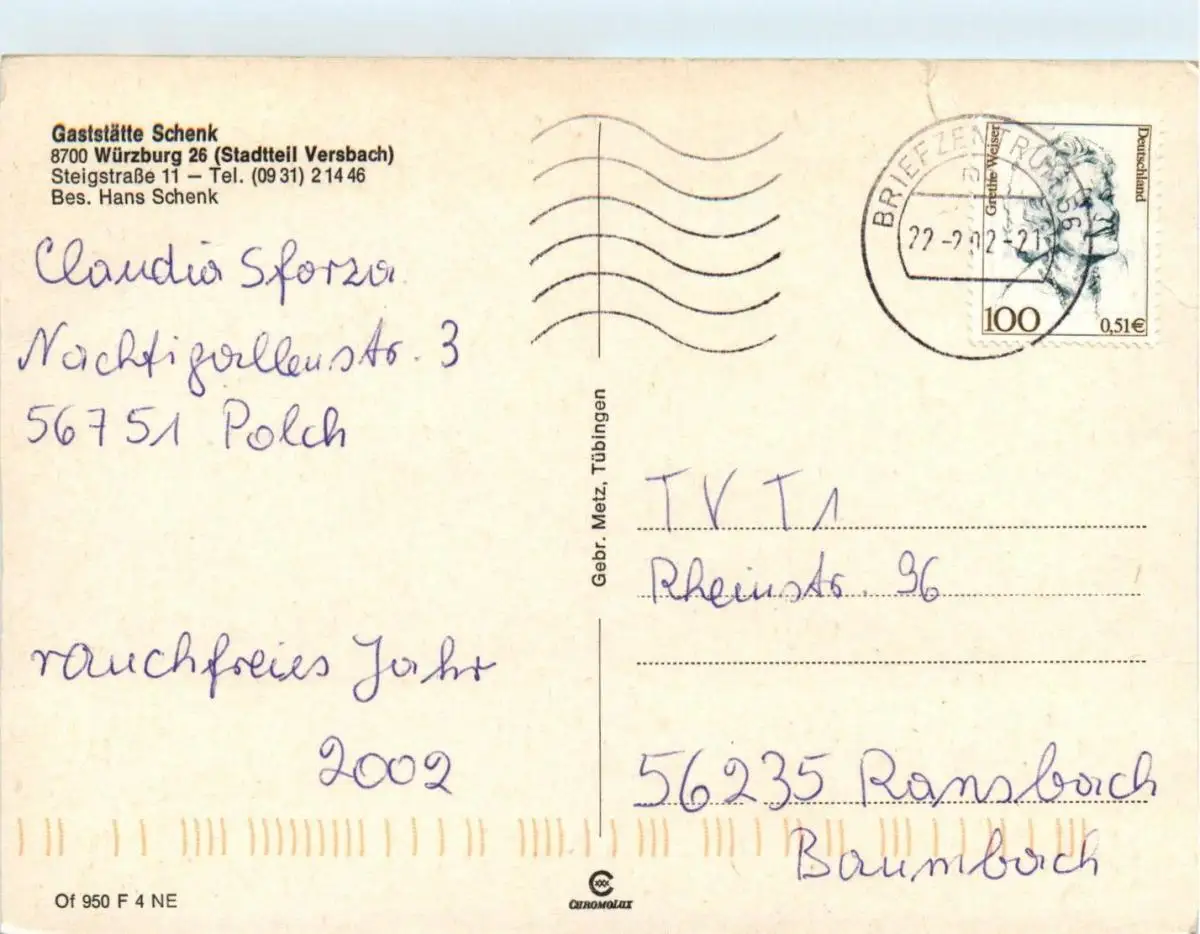 Gaststätte Schenk
8700 Würzburg 26 (Stadtteil Versbach)
Steigstraße 11 — Tel. (09 31) 2 14 46
Bes. Hans Schenk
Claudia Sforza
Nachtigallenstr. 3
56751 Polch
rauchfreies Jahr
2002
Of 950 F 4 NE
Gebr. Metz, Tübingen
CHROMOLUX
BRIEFZENTRUM 56
Grethe Weiser
Deutschland
100
0,51€
TV T1
Rheinstr. 96
56235 Ransbach
Baumbach